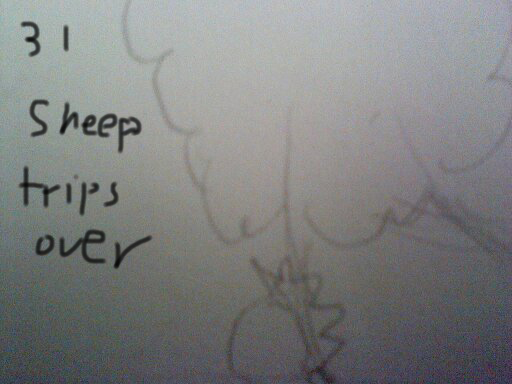 31
Sheep
trips
over